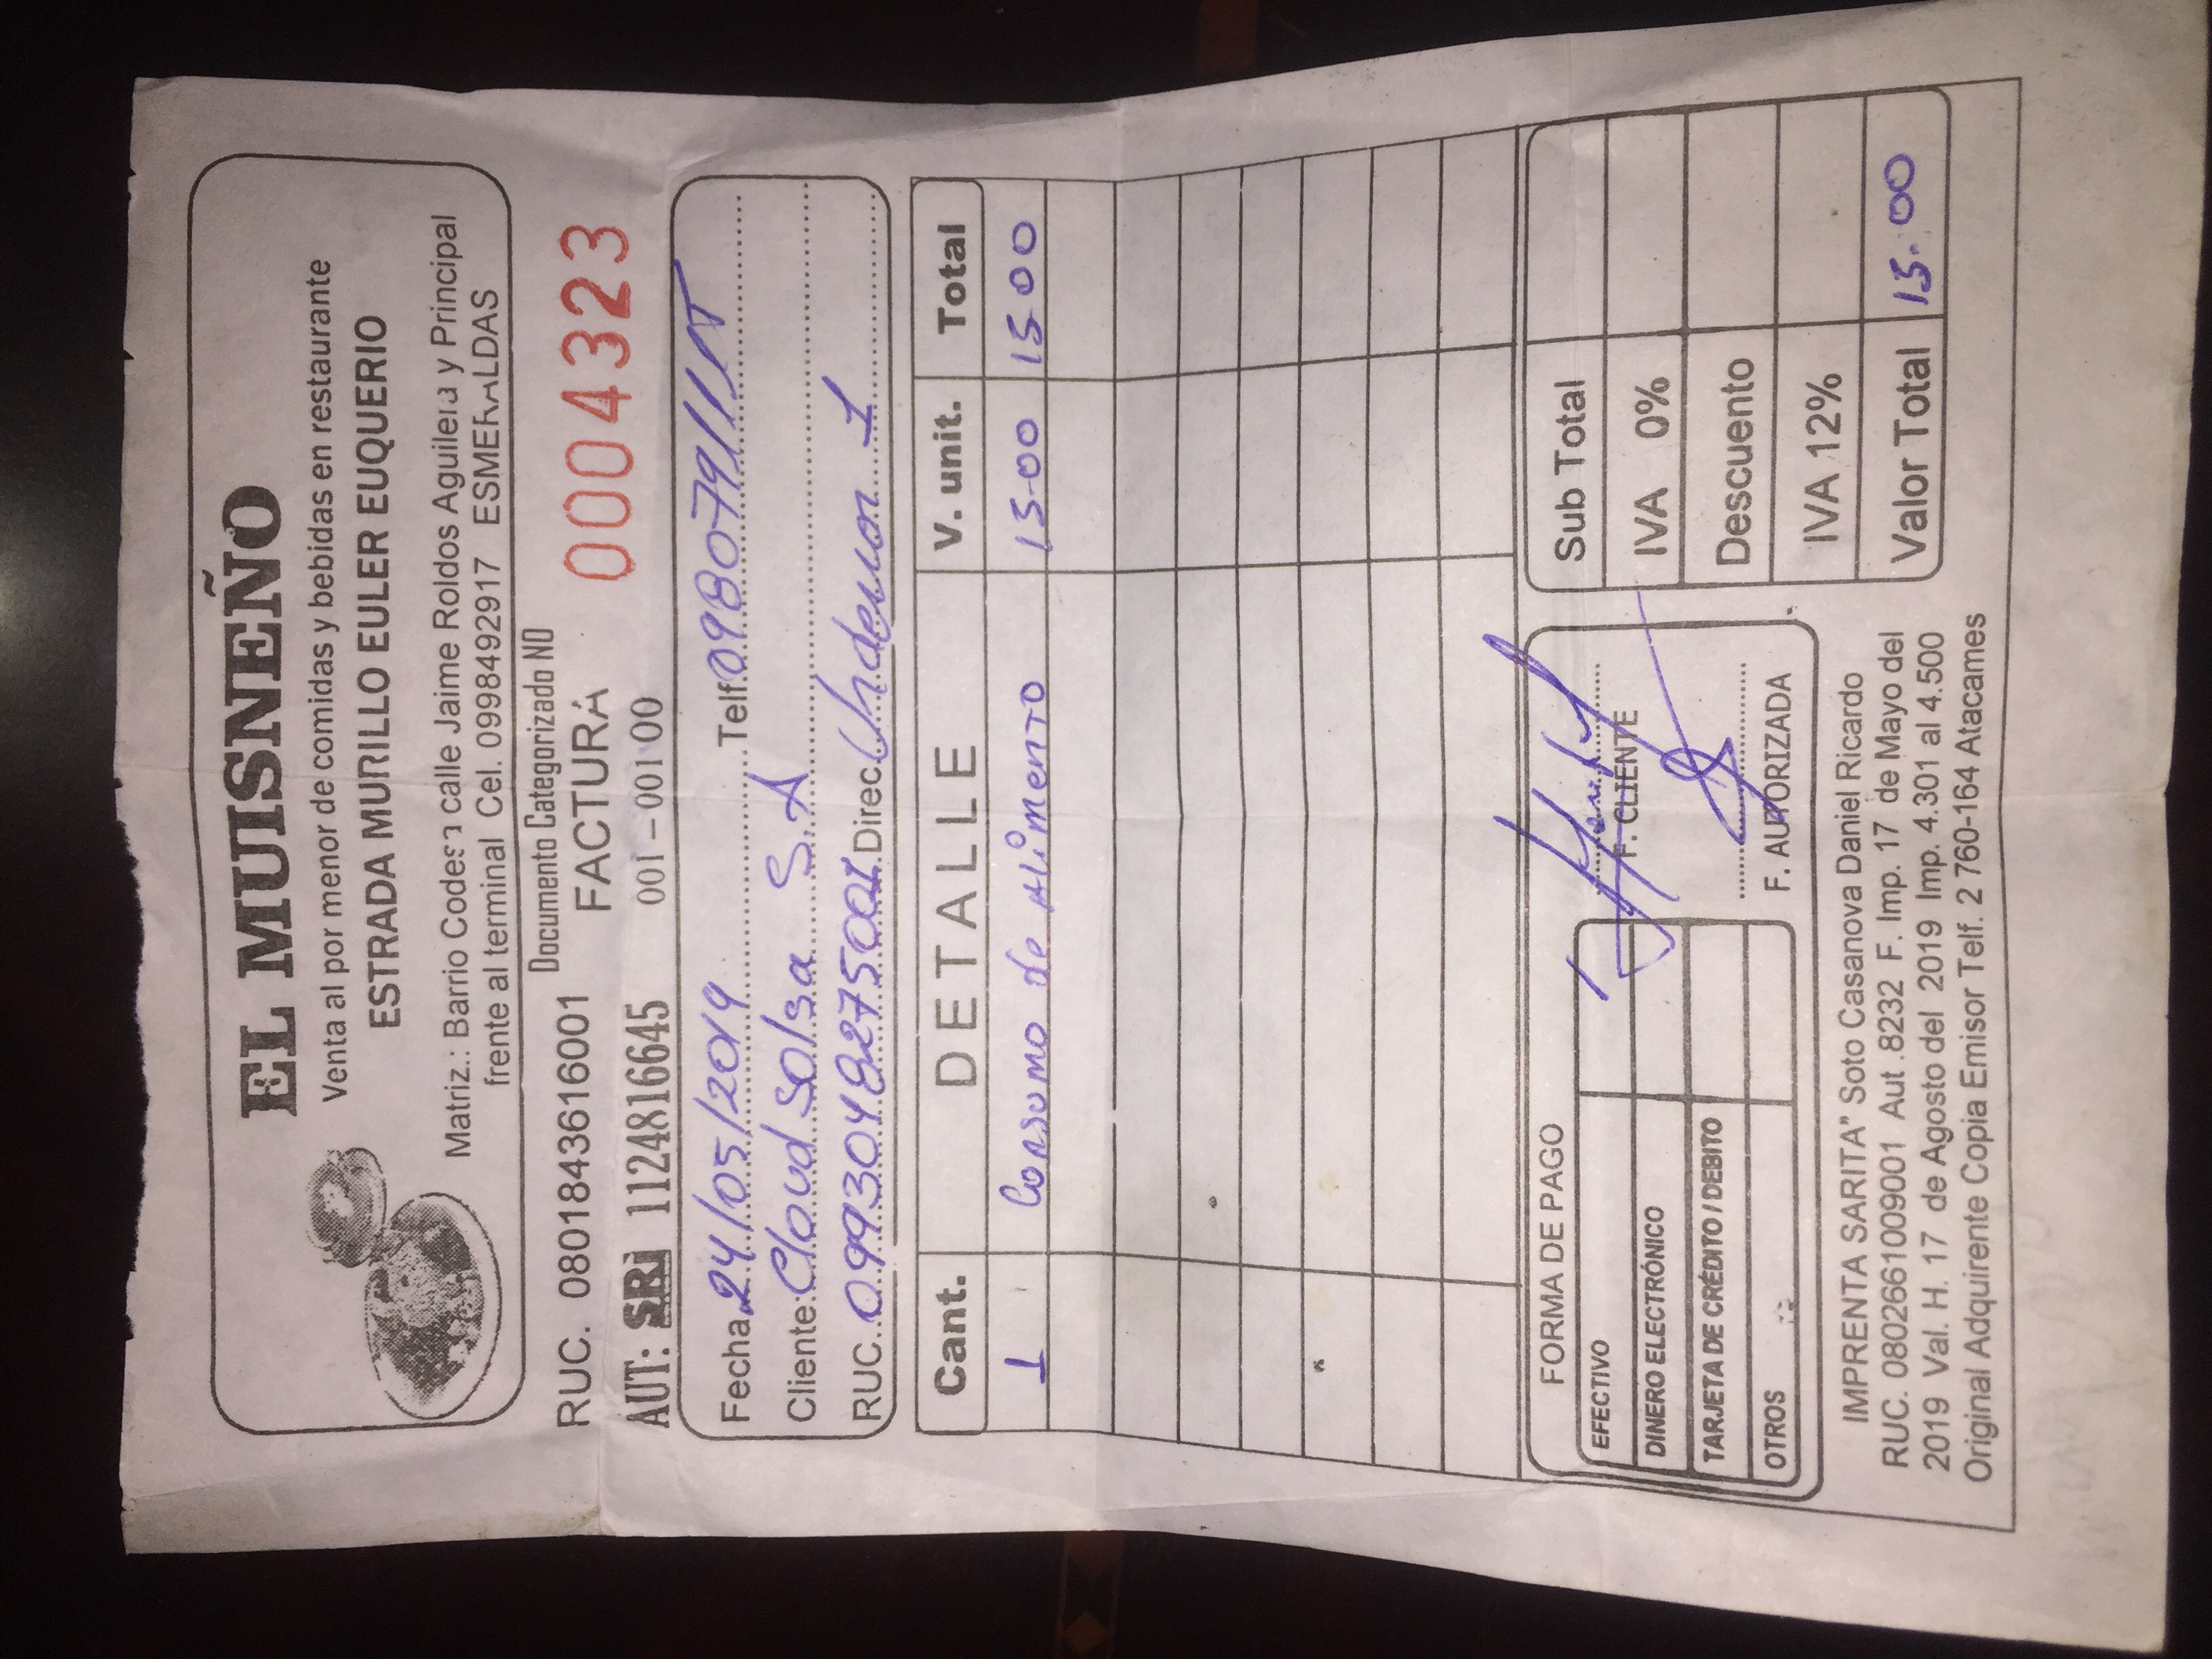 EL MUISNEÑO
Venta al por menor de comidas y bebidas en restaurante
ESTRADA MURILLO EULER EUQUERIO
Matriz.: Barrio Codesa calle Jaime Roldos Aguilera y Principal
frente al terminal Cel. 0998492917 ESMERALDAS
Documento Categorizado NO
RUC. 0801843616001 FACTURA 0004323
AUT: SRi 1124816645 001 – 001 00
Fecha 24/05/2019 Telf.
Cliente: Cloud Solsa S.A
RUC. 0993048275001 Direc. 1
Cant. DETALLE V. unit. Total
1 Consumo de Alimento 15-00 15 00
FORMA DE PAGO
EFECTIVO
DINERO ELECTRÓNICO
TARJETA DE CRÉDITO / DEBITO
OTROS
F. CLIENTE
F. AUTORIZADA
Sub Total
IVA 0%
Descuento
IVA 12%
Valor Total 15.00
IMPRENTA SARITA" Soto Casanova Daniel Ricardo
RUC. 0802661009001 Aut .8232 F. Imp. 17 de Mayo del
2019 Val. H. 17 de Agosto del 2019 Imp. 4.301 al 4.500
Original Adquirente Copia Emisor Telf. 2 760-164 Atacames